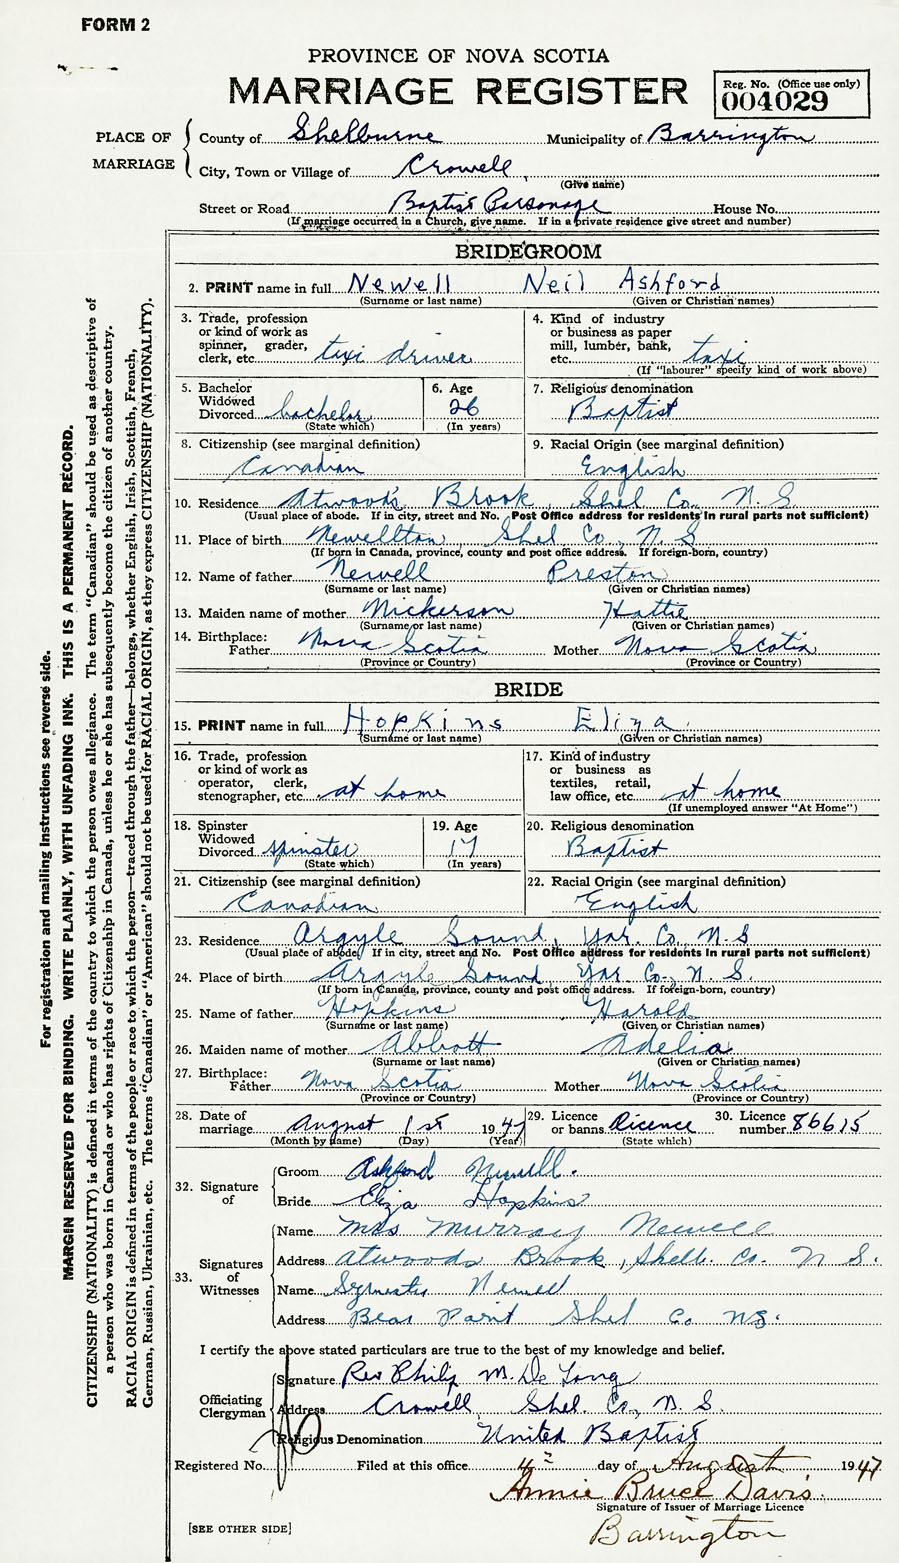 FORM 2
PROVINCE OF NOVA SCOTIA
MARRIAGE REGISTER
Reg. No. (Office use only)
004029
PLACE OF MARRIAGE
County of Shelburne Municipality of Barrington
City, Town or Village of Crowell,
(Give name)
Street or Road Baptist Parsonage House No.
(If marriage occurred in a Church, give name. If in a private residence give street and number)
BRIDEGROOM
2. PRINT name in full Newell Neil Ashford
(Surname or last name) (Given or Christian names)
3. Trade, profession or kind of work as spinner, grader, clerk, etc. taxi driver
4. Kind of industry or business as paper mill, lumber, bank, etc. taxi
(If "labourer" specify kind of work above)
5. Bachelor Widowed Divorced bachelor
(State which)
6. Age 26
(In years)
7. Religious denomination
Baptist
8. Citizenship (see marginal definition)
Canadian
9. Racial Origin (see marginal definition)
English
10. Residence Atwood's Brook, Shel Co., N. S.
(Usual place of abode. If in city, street and No. Post Office address for residents in rural parts not sufficient)
11. Place of birth Newellton, Shel Co., N. S
(If born in Canada, province, county and post office address. If foreign-born, country)
12. Name of father Newell Preston
(Surname or last name) (Given or Christian names)
13. Maiden name of mother Nickerson Hattie
(Surname or last name) (Given or Christian names)
14. Birthplace:
Father Nova Scotia Mother Nova Scotia
(Province or Country) (Province or Country)
BRIDE
15. PRINT name in full Hopkins Eliza
(Surname or last name) (Given or Christian names)
16. Trade, profession or kind of work as operator, clerk, stenographer, etc. at home
17. Kind of industry or business as textiles, retail, law office, etc. at home
(If unemployed answer "At Home")
18. Spinster Widowed Divorced spinster
(State which)
19. Age 17
(In years)
20. Religious denomination
Baptist
21. Citizenship (see marginal definition)
Canadian
22. Racial Origin (see marginal definition)
English
23. Residence Argyle Sound, Yar. Co., N. S
(Usual place of abode. If in city, street and No. Post Office address for residents in rural parts not sufficient)
24. Place of birth Argyle Sound Yar. Co., N. S.
(If born in Canada, province, county and post office address. If foreign-born, country)
25. Name of father Hopkins Harold
(Surname or last name) (Given or Christian names)
26. Maiden name of mother Abbott Adelia
(Surname or last name) (Given or Christian names)
27. Birthplace:
Father Nova Scotia Mother Nova Scotia
(Province or Country) (Province or Country)
28. Date of marriage August 1st 1947
(Month by name) (Day) (Year)
29. Licence or banns Licence
(State which)
30. Licence number 86615
32. Signature of
Groom Ashford Newell.
Bride Eliza Hopkins
33. Signatures of Witnesses
Name Mrs Murray Newell
Address Atwoods Brook, Shelb. Co. N S.
Name Newell
Address Bear Point Shel Co NS.
I certify the above stated particulars are true to the best of my knowledge and belief.
Officiating Clergyman
Signature Rev Philip M. De Long
Address Crowell, Shel. Co., N. S.
Religious Denomination United Baptist
Registered No. Filed at this office 4th day of August 1947
Annie Bruce Davis.
Signature of Issuer of Marriage Licence
[SEE OTHER SIDE] Barrington
For registration and mailing instructions see reverse side.
MARGIN RESERVED FOR BINDING. WRITE PLAINLY, WITH UNFADING INK. THIS IS A PERMANENT RECORD.
CITIZENSHIP (NATIONALITY) is defined in terms of the country to which the person owes allegiance. The term "Canadian" should be used as descriptive of
a person who was born in Canada or who has rights of Citizenship in Canada, unless he or she has subsequently become the citizen of another country.
RACIAL ORIGIN is defined in terms of the people or race to which the person—traced through the father—belongs, whether English, Irish, Scottish, French,
German, Russian, Ukrainian, etc. The terms "Canadian" or "American" should not be used for RACIAL ORIGIN, as they express CITIZENSHIP (NATIONALITY).